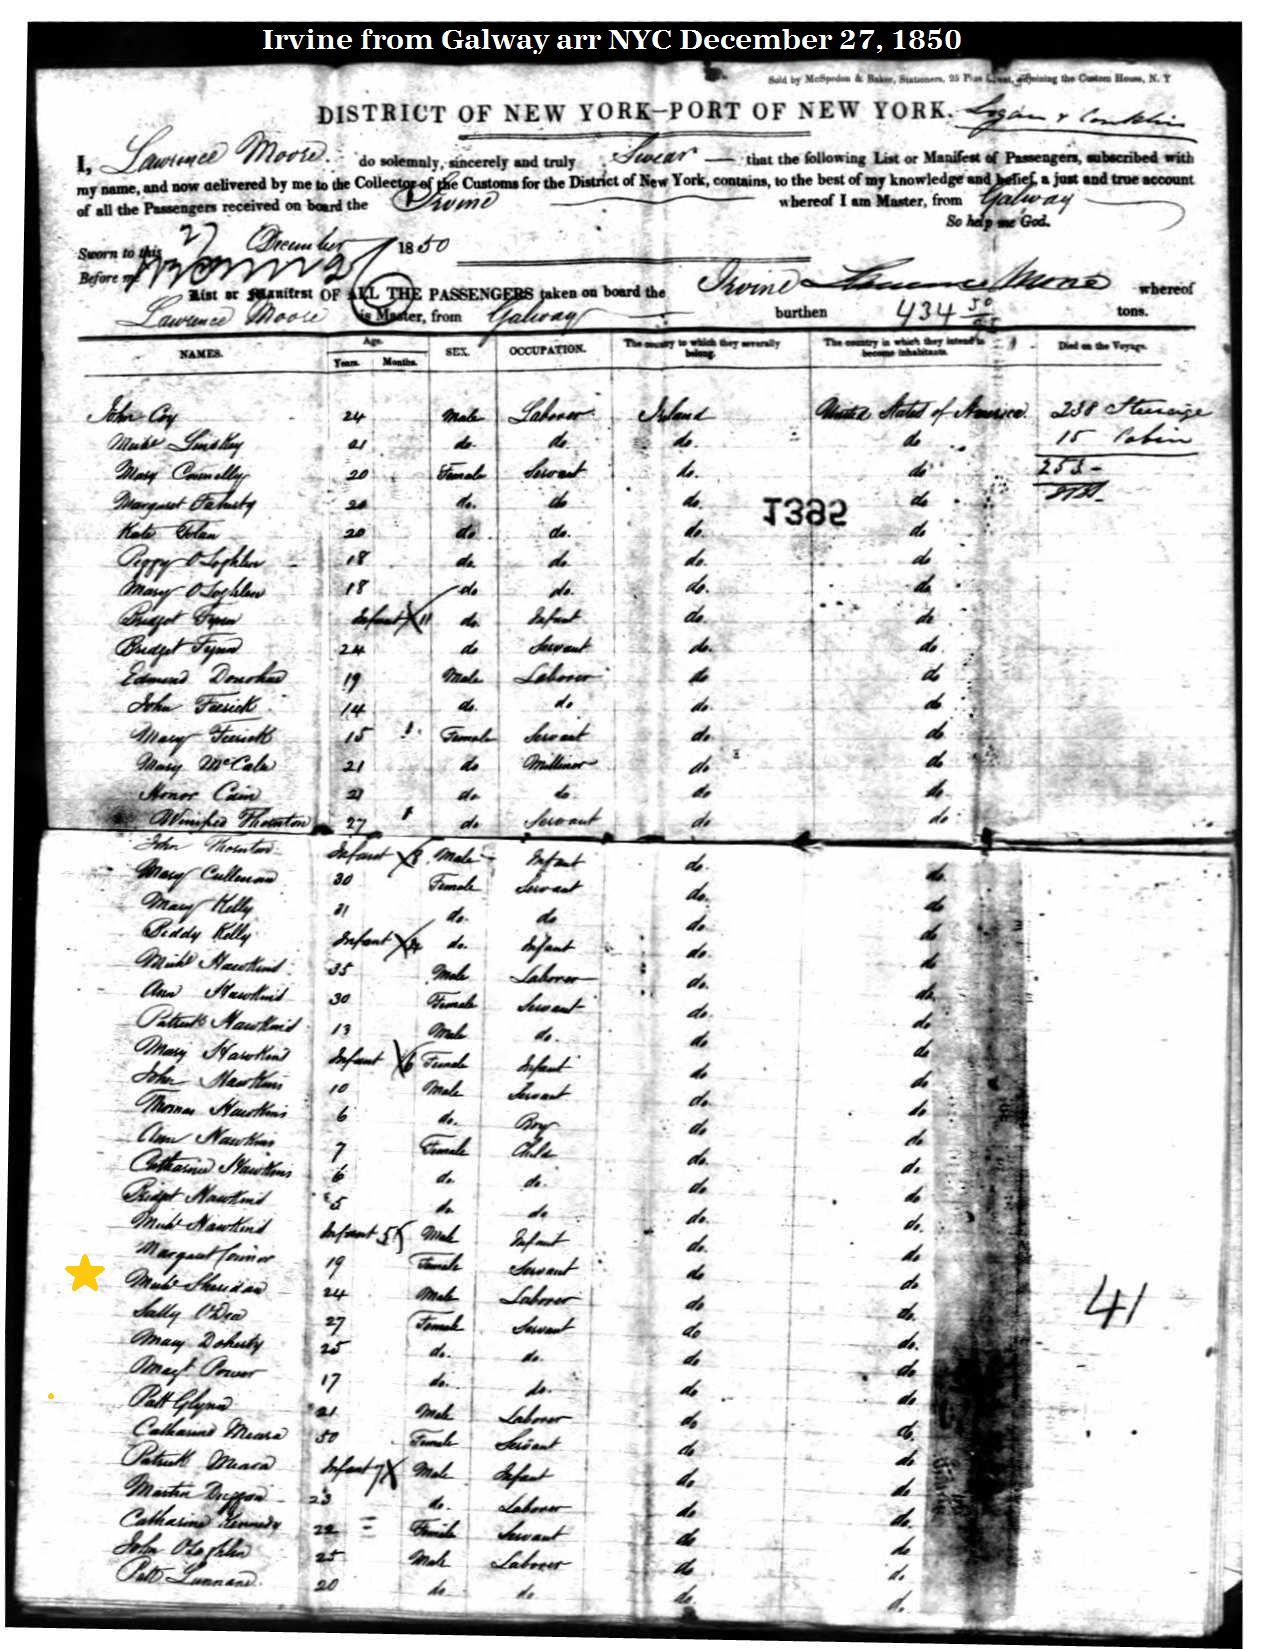 Irvine from Galway arr NYC December 27, 1850
Sold by McSpedon & Baker, Stationers, 25 Pine Street, adjoining the Custom House, N. Y
DISTRICT OF NEW YORK—PORT OF NEW YORK. Logan & Conklin
I, Lawrence Moore do solemnly, sincerely and truly Swear — that the following List or Manifest of Passengers, subscribed with
my name, and now delivered by me to the Collector of the Customs for the District of New York, contains, to the best of my knowledge and belief, a just and true account
of all the Passengers received on board the Irvine whereof I am Master, from Galway
So help me God.
Sworn to this 27 December 1850
Before me
List or Manifest OF ALL THE PASSENGERS taken on board the Irvine Lawrence Moore whereof
Lawrence Moore is Master, from Galway burthen 434 50/95 tons.
NAMES. Age. Years. Months. SEX. OCCUPATION. The country to which they severally belong. The country in which they intend to become inhabitants. Died on the Voyage.
John Coy 24 Male Laborer Ireland United States of America. 238 Steerage
Michl Lindsay 21 do. do. do. do 15 Cabin
Mary Connolly 20 Female Servant do. do 253
Margaret Faherty 20 do. do do. do
1382
Kate Tolan 20 do do. do. do
Peggy O'Loghlen 18 do. do. do. do
Mary O'Loghlen 18 do do. do. do
Bridget Fynn Infant 11 do. Infant do. do
Bridget Fynn 24 do Servant do. do.
Edmund Donohue 19 Male Laborer do do
John Fierick 14 do. do do. do
Mary Fierick 15 Female Servant do. do
Mary McCale 21 do Milliner do do
Honor Cain 21 do do. do do.
Winifred Thornton 27 do Servant do do
John Thornton Infant 8 Male Infant do. do.
Mary Cullinan 30 Female Servant do. do
Mary Kelly 31 do. do do. do
Biddy Kelly Infant 4 do. Infant do. do
Michl Hawkins 35 Male Laborer do. do.
Ann Hawkins 30 Female Servant do. do
Patrick Hawkins 13 Male do. do. do
Mary Hawkins Infant 6 Female Infant do do
John Hawkins 10 Male Servant do. do
Thomas Hawkins 6 do. Boy do. do
Ann Hawkins 7 Female Child do. do.
Catharine Hawkins 6 do. do. do do
Bridget Hawkins 5 do do do. do.
Michl Hawkins Infant 5 Male Infant do. do
Margaret Connor 19 Female Servant do do
Michl Sheridan 24 Male Laborer do do.
Sally O'Dea 27 Female Servant do do.
Mary Doherty 25 do. do. do do
Margt Power 17 do. do. do do
41
Patt Glynn 21 Male Laborer do do.
Catharine Meara 50 Female Servant do do
Patrick Meara Infant 7 Male Infant do do
Martin Duggan 23 do. Laborer do do.
Catharine Kennedy 22 Female Servant do do
John O'Loghlin 25 Male Laborer do d.
Patt Lunnane 20 do do. do. d.